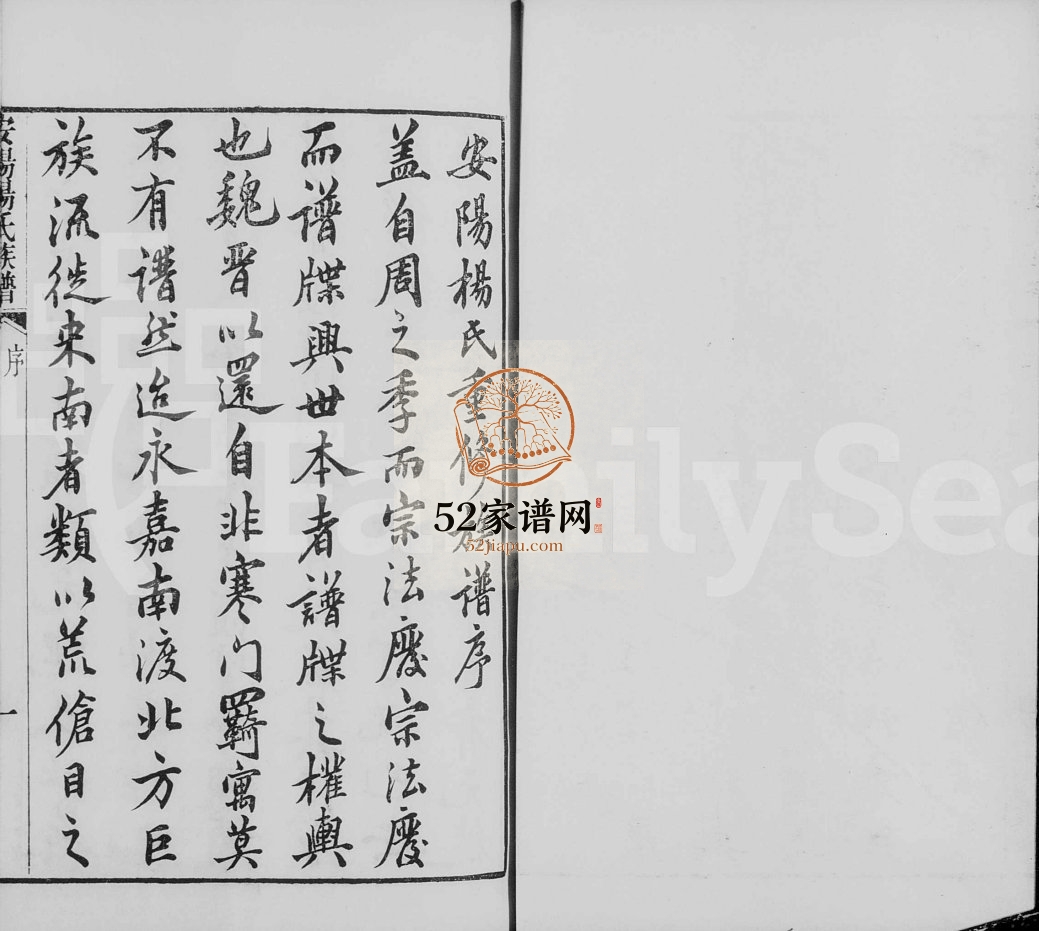 安陽楊氏重修族譜序
蓋自周之季而宗法廢宗法廢
而譜牒興世本者譜牒之權輿
也魏晉以還自非寒門羇寓莫
不有譜然迨永嘉南渡北方巨
族流徙來南者類以荒傖目之
安陽楊氏族譜
序
一
52家谱网
52jiapu.com
FamilySea